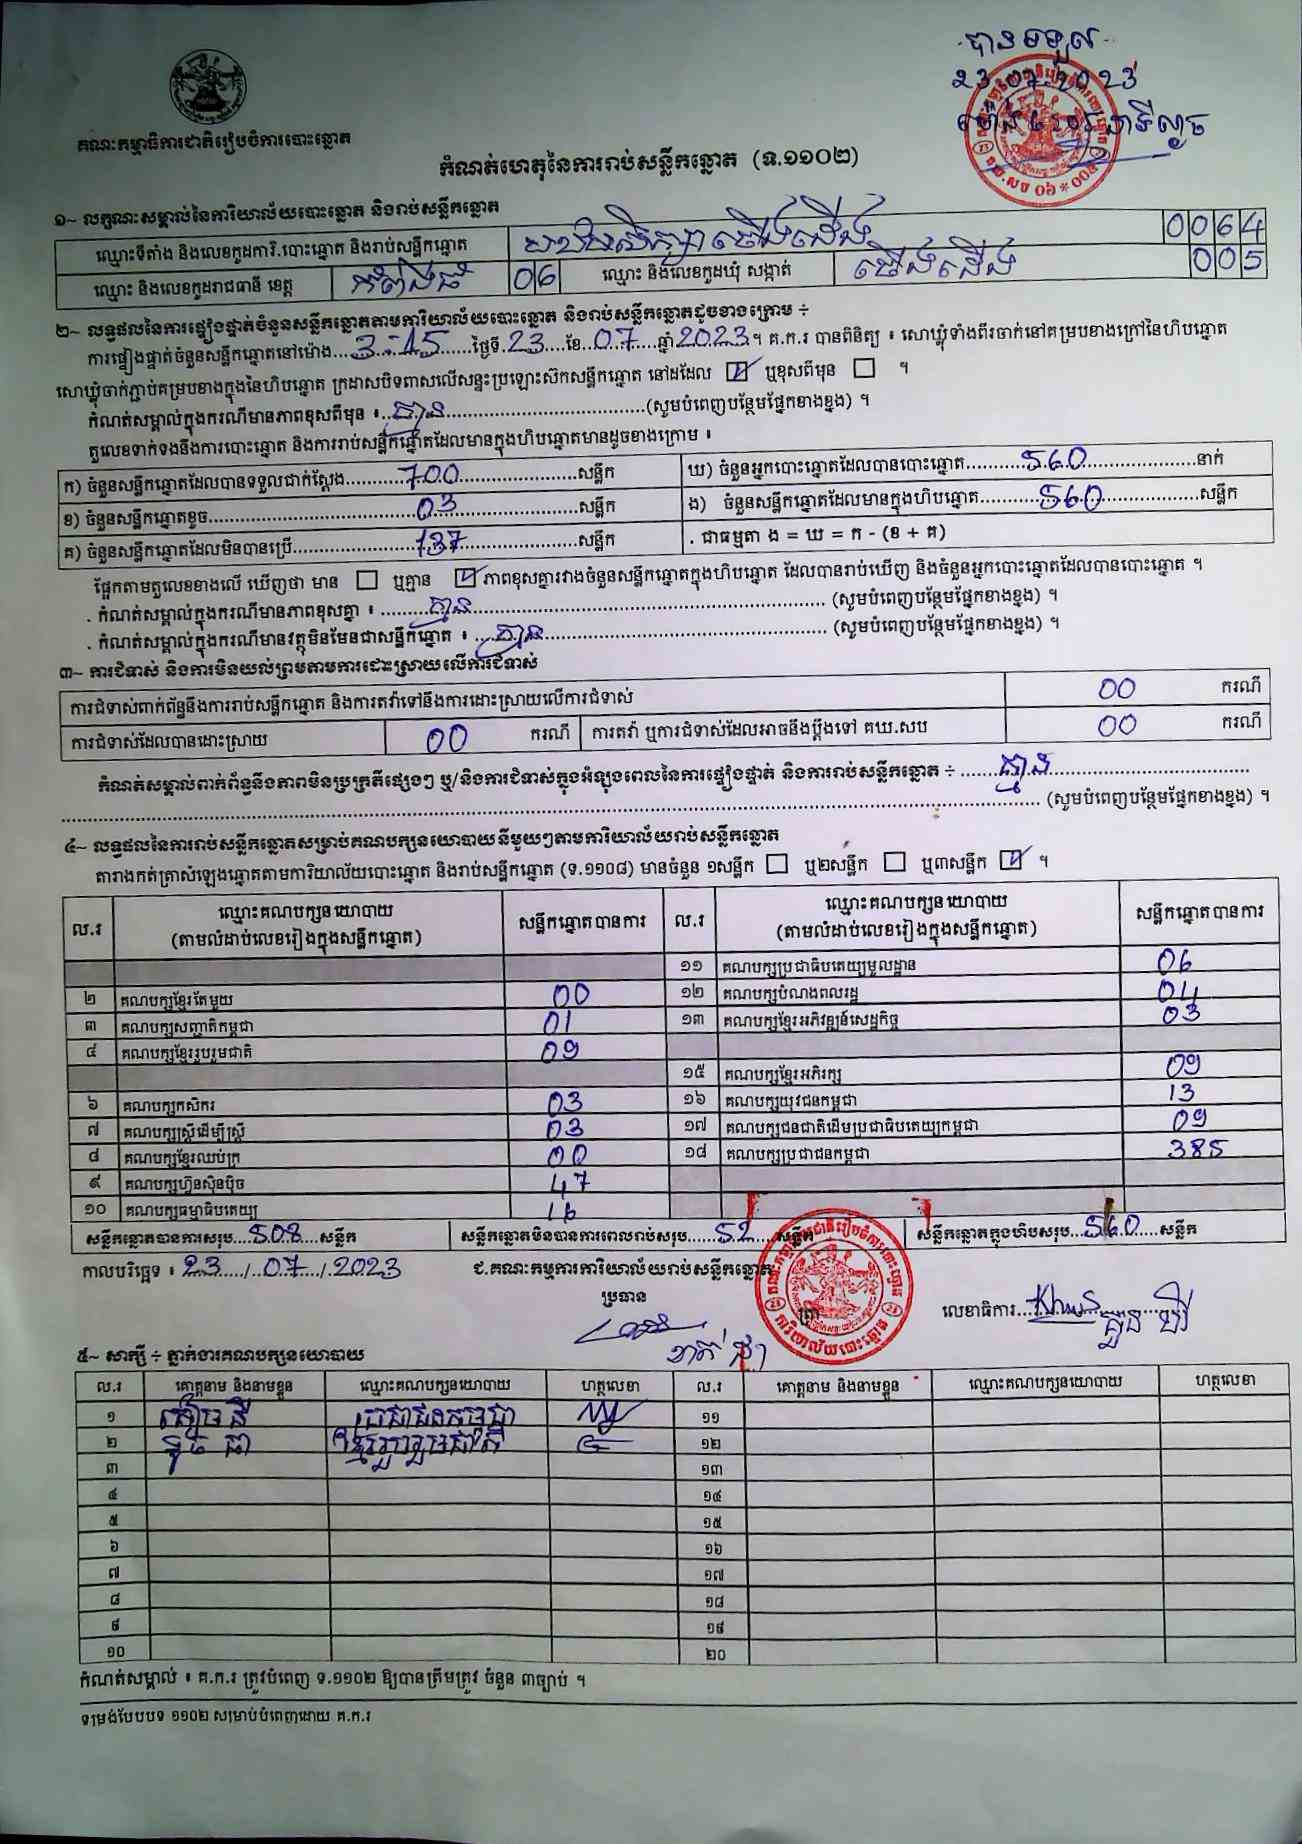 បានទទួល
23.07.2023
គណៈកម្មាធិការជាតិរៀបចំការបោះឆ្នោត
កំណត់ហេតុនៃការរាប់សន្លឹកឆ្នោត (ទ.១១០២)
១~ លក្ខណៈសម្គាល់នៃការិយាល័យបោះឆ្នោត និងរាប់សន្លឹកឆ្នោត
ឈ្មោះទីតាំង និងលេខកូដការិ.បោះឆ្នោត និងរាប់សន្លឹកឆ្នោត 0064
ឈ្មោះ និងលេខកូដរាជធានី ខេត្ត កំពង់ធំ 06 ឈ្មោះ និងលេខកូដឃុំ សង្កាត់ ជើងដើង 005
២~ លទ្ធផលនៃការផ្ទៀងផ្ទាត់ចំនួនសន្លឹកឆ្នោតតាមការិយាល័យបោះឆ្នោត និងរាប់សន្លឹកឆ្នោតដូចខាងក្រោម ÷
ការផ្ទៀងផ្ទាត់ចំនួនសន្លឹកឆ្នោតនៅម៉ោង...3-15...ថ្ងៃទី.23...ខែ..07...ឆ្នាំ 2023.។ គ.ក.រ បានពិនិត្យ ៖ សោឃ្លុំទាំងពីរចាក់នៅគម្របខាងក្រៅនៃហិបឆ្នោត
សោឃ្លុំចាក់ភ្ជាប់គម្របខាងក្នុងនៃហិបឆ្នោត ក្រដាសបិទពាសលើសន្ទះប្រឡោះស៊កសន្លឹកឆ្នោត នៅដដែល ☑ ឬខុសពីមុន ☐ ។
កំណត់សម្គាល់ក្នុងករណីមានភាពខុសពីមុន ៖..គ្មាន......(សូមបំពេញបន្ថែមផ្នែកខាងខ្នង) ។
តួលេខទាក់ទងនឹងការបោះឆ្នោត និងការរាប់សន្លឹកឆ្នោតដែលមានក្នុងហិបឆ្នោតមានដូចខាងក្រោម ៖
ក) ចំនួនសន្លឹកឆ្នោតដែលបានទទួលជាក់ស្តែង......700......សន្លឹក ឃ) ចំនួនអ្នកបោះឆ្នោតដែលបានបោះឆ្នោត......560......នាក់
ខ) ចំនួនសន្លឹកឆ្នោតខូច......03......សន្លឹក ង) ចំនួនសន្លឹកឆ្នោតដែលមានក្នុងហិបឆ្នោត......560......សន្លឹក
គ) ចំនួនសន្លឹកឆ្នោតដែលមិនបានប្រើ......137......សន្លឹក . ជាធម្មតា ង = ឃ = ក - (ខ + គ)
ផ្អែកតាមតួលេខខាងលើ ឃើញថា មាន ☐ ឬគ្មាន ☑ ភាពខុសគ្នារវាងចំនួនសន្លឹកឆ្នោតក្នុងហិបឆ្នោត ដែលបានរាប់ឃើញ និងចំនួនអ្នកបោះឆ្នោតដែលបានបោះឆ្នោត ។
. កំណត់សម្គាល់ក្នុងករណីមានភាពខុសគ្នា ៖ ......គ្មាន...... (សូមបំពេញបន្ថែមផ្នែកខាងខ្នង) ។
. កំណត់សម្គាល់ក្នុងករណីមានវត្ថុមិនមែនជាសន្លឹកឆ្នោត ៖ ....គ្មាន...... (សូមបំពេញបន្ថែមផ្នែកខាងខ្នង) ។
៣~ ការជំទាស់ និងការមិនយល់ព្រមតាមការដោះស្រាយលើការជំទាស់
ការជំទាស់ពាក់ព័ន្ធនឹងការរាប់សន្លឹកឆ្នោត និងការតវ៉ាទៅនឹងការដោះស្រាយលើការជំទាស់ 00 ករណី
ការជំទាស់ដែលបានដោះស្រាយ 00 ករណី ការតវ៉ា ឬការជំទាស់ដែលអាចនឹងប្តឹងទៅ គឃ.សប 00 ករណី
កំណត់សម្គាល់ពាក់ព័ន្ធនឹងភាពមិនប្រក្រតីផ្សេងៗ ឬ/និងការជំទាស់ក្នុងអំឡុងពេលនៃការផ្ទៀងផ្ទាត់ និងការរាប់សន្លឹកឆ្នោត ÷ ......គ្មាន......
...... (សូមបំពេញបន្ថែមផ្នែកខាងខ្នង) ។
៤~ លទ្ធផលនៃការរាប់សន្លឹកឆ្នោតសម្រាប់គណបក្សនយោបាយនីមួយៗតាមការិយាល័យរាប់សន្លឹកឆ្នោត
តារាងកត់ត្រាសំឡេងឆ្នោតតាមការិយាល័យបោះឆ្នោត និងរាប់សន្លឹកឆ្នោត (ទ.១១០៨) មានចំនួន ១សន្លឹក ☐ ឬ២សន្លឹក ☐ ឬ៣សន្លឹក ☑ ។
ល.រ ឈ្មោះគណបក្សនយោបាយ (តាមលំដាប់លេខរៀងក្នុងសន្លឹកឆ្នោត) សន្លឹកឆ្នោតបានការ ល.រ ឈ្មោះគណបក្សនយោបាយ (តាមលំដាប់លេខរៀងក្នុងសន្លឹកឆ្នោត) សន្លឹកឆ្នោតបានការ
១១ គណបក្សប្រជាធិបតេយ្យមូលដ្ឋាន 06
២ គណបក្សខ្មែរតែមួយ 00 ១២ គណបក្សបំណងពលរដ្ឋ 04
៣ គណបក្សសញ្ជាតិកម្ពុជា 01 ១៣ គណបក្សខ្មែរអភិវឌ្ឍន៍សេដ្ឋកិច្ច 03
៤ គណបក្សខ្មែររួបរួមជាតិ 09
១៥ គណបក្សខ្មែរអភិរក្ស 09
៦ គណបក្សកសិករ 03 ១៦ គណបក្សយុវជនកម្ពុជា 13
៧ គណបក្សស្ត្រីដើម្បីស្ត្រី 03 ១៧ គណបក្សជនជាតិដើមប្រជាធិបតេយ្យកម្ពុជា 09
៨ គណបក្សខ្មែរឈប់ក្រ 00 ១៨ គណបក្សប្រជាជនកម្ពុជា 385
៩ គណបក្សហ៊្វុនស៊ិនប៉ិច 47
១០ គណបក្សធម្មាធិបតេយ្យ 16
សន្លឹកឆ្នោតបានការសរុប...508...សន្លឹក សន្លឹកឆ្នោតមិនបានការពេលរាប់សរុប......52...សន្លឹក សន្លឹកឆ្នោតក្នុងហិបសរុប...560.....សន្លឹក
កាលបរិច្ឆេទ ៖ 23..../..07..../.2023 ជ.គណៈកម្មការការិយាល័យរាប់សន្លឹកឆ្នោត
ប្រធាន
ត្រា
លេខាធិការ......
៥~ សាក្សី ÷ ភ្នាក់ងារគណបក្សនយោបាយ
ល.រ គោត្តនាម និងនាមខ្លួន ឈ្មោះគណបក្សនយោបាយ ហត្ថលេខា ល.រ គោត្តនាម និងនាមខ្លួន ឈ្មោះគណបក្សនយោបាយ ហត្ថលេខា
១ ប្រជាជនកម្ពុជា ១១
២ ខ្មែររួបរួមជាតិ ១២
៣ ១៣
៤ ១៤
៥ ១៥
៦ ១៦
៧ ១៧
៨ ១៨
៩ ១៩
១០ ២០
កំណត់សម្គាល់ ៖ គ.ក.រ ត្រូវបំពេញ ទ.១១០២ ឱ្យបានត្រឹមត្រូវ ចំនួន ៣ច្បាប់ ។
ទម្រង់បែបបទ ១១០២ សម្រាប់បំពេញដោយ គ.ក.រ